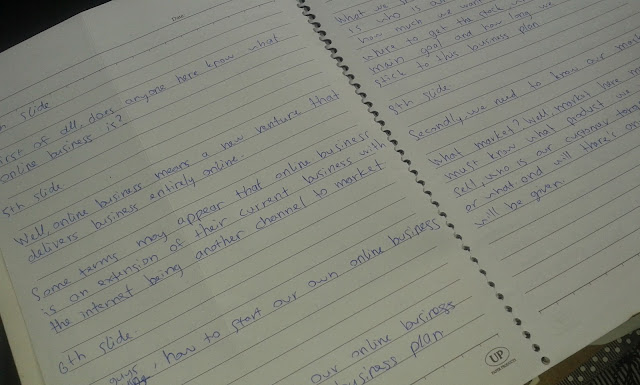 Date:
slide
First of all, does anyone here know what
online business is?
5th slide
Well, online business means a new venture that
delivers business entirely online.
Some terms may appear that online business
is an extension of their current business with
the internet being another channel to market
6th slide.
guys
, how to start our own online business
our online business
business plan.
UP
What we
is who is
how much we
where to get the stock
main goal and how long we
stick to this business plan
8th slide.
Secondly, we need to know our
What market? Well, market here
must know what product we
sell, who is our customer
or what and will there's
will be given.